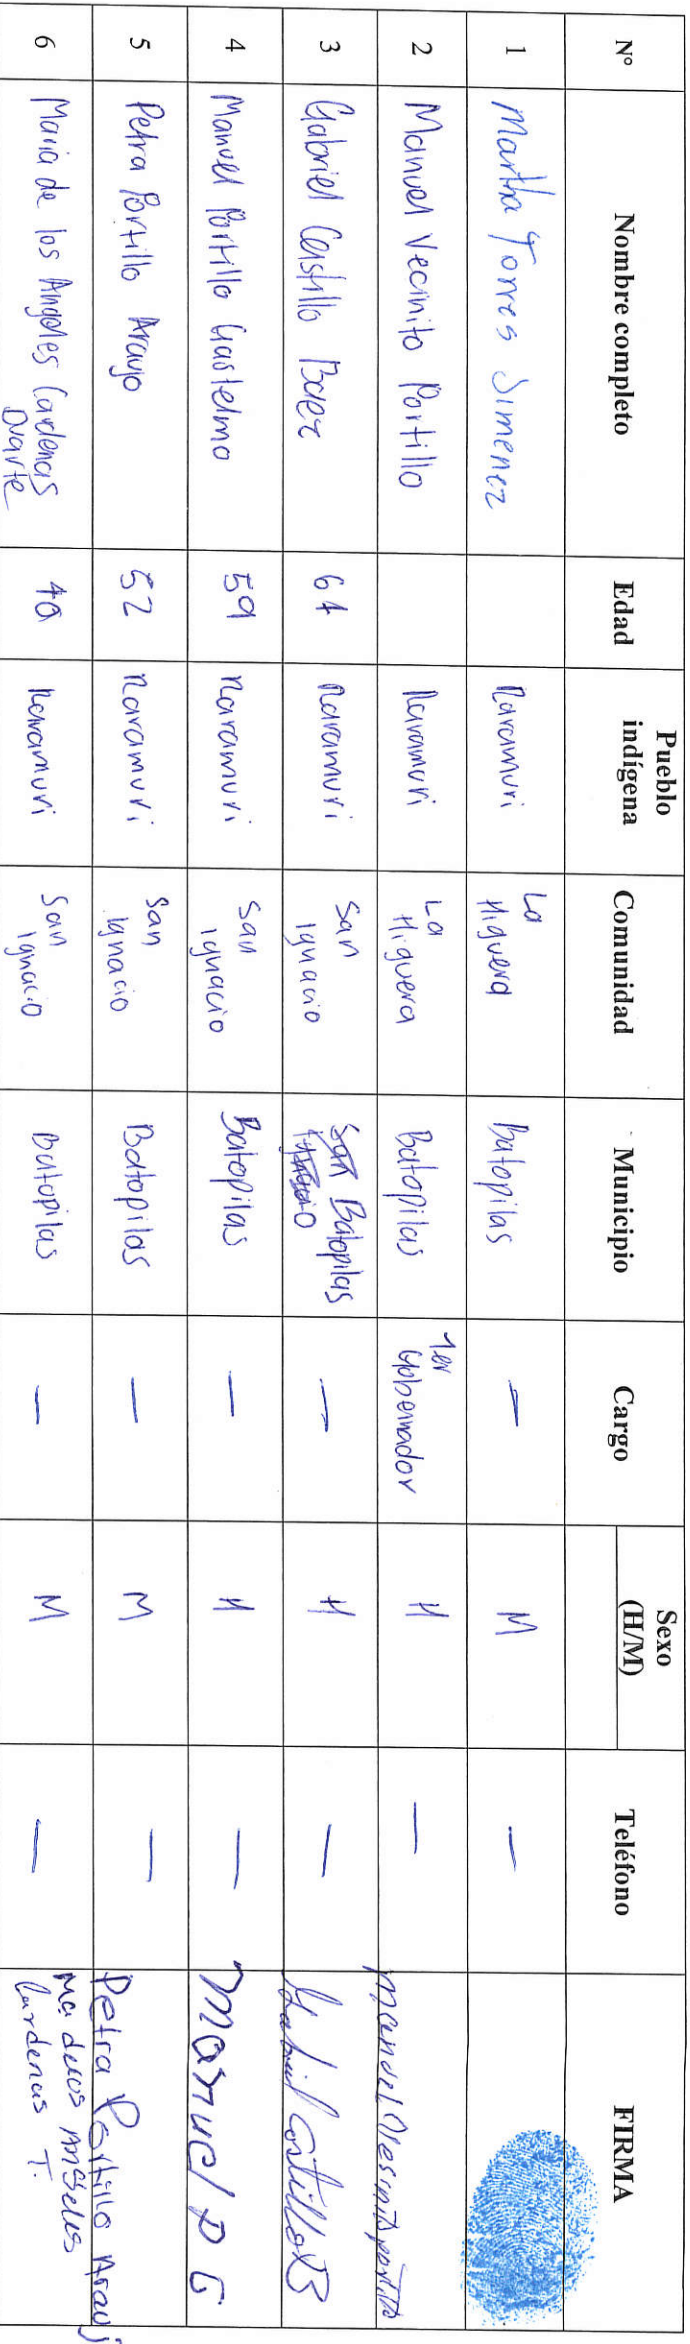 N° Nombre completo Edad Pueblo indígena Comunidad Municipio Cargo Sexo (H/M) Teléfono FIRMA
1 Martha Torres Jimenez Raramuri La Higuera Batopilas —  M —
2 Manuel Vecinito Portillo Raramuri La Higuera Batopilas 1er Gobernador H — manuel Vesinito portillo
3 Gabriel Castillo Baez 64 Raramuri San Ignacio San Ignacio Batopilas — H — Gabriel Castillo B
4 Manuel Portillo Gastelmo 59 Raramuri San Ignacio Batopilas — H — Manuel P G
5 Petra Portillo Araujo 52 Raramuri San Ignacio Batopilas — M — Petra Portillo Arauj
6 Maria de los Angeles Cardenas Duarte 40 Raramuri San Ignacio Batopilas — M — Ma de los Angeles Cardenas T.